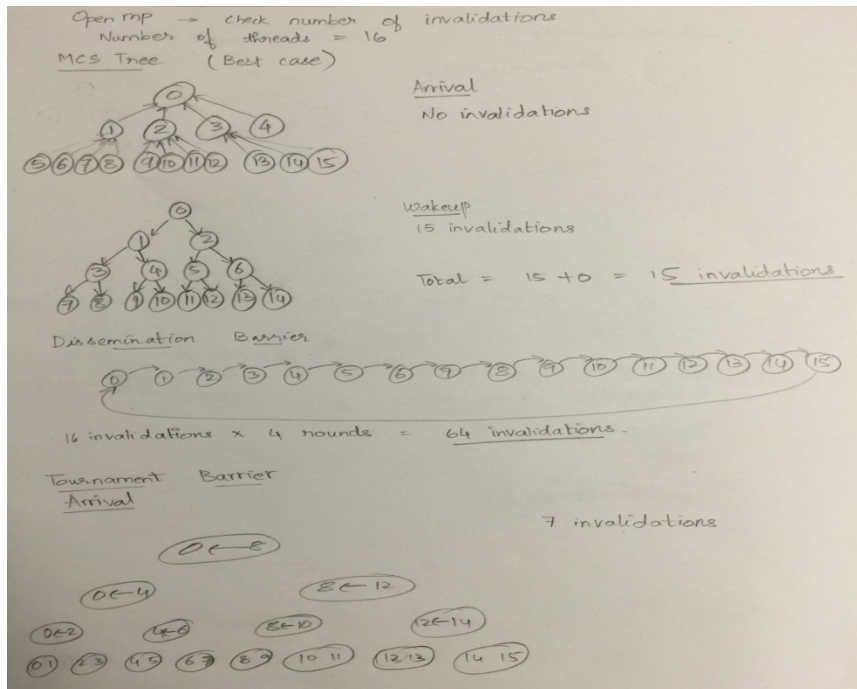 Open mp → check number of invalidations
Number of threads = 16
MCS Tree (Best case)
Arrival
No invalidations
0
1 2 3 4
5 6 7 8 9 10 11 12 13 14 15
Wakeup
15 invalidations
Total = 15 + 0 = 15 invalidations
0
1 2
3 4 5 6
7 8 9 10 11 12 13 14
Dissemination Barrier
0 1 2 3 4 5 6 7 8 9 10 11 12 13 14 15
16 invalidations × 4 rounds = 64 invalidations.
Tournament Barrier
Arrival
7 invalidations
0 ← 8
0 ← 4 8 ← 12
0←2 4←6 8←10 12←14
0 1 2 3 4 5 6 7 8 9 10 11 12 13 14 15